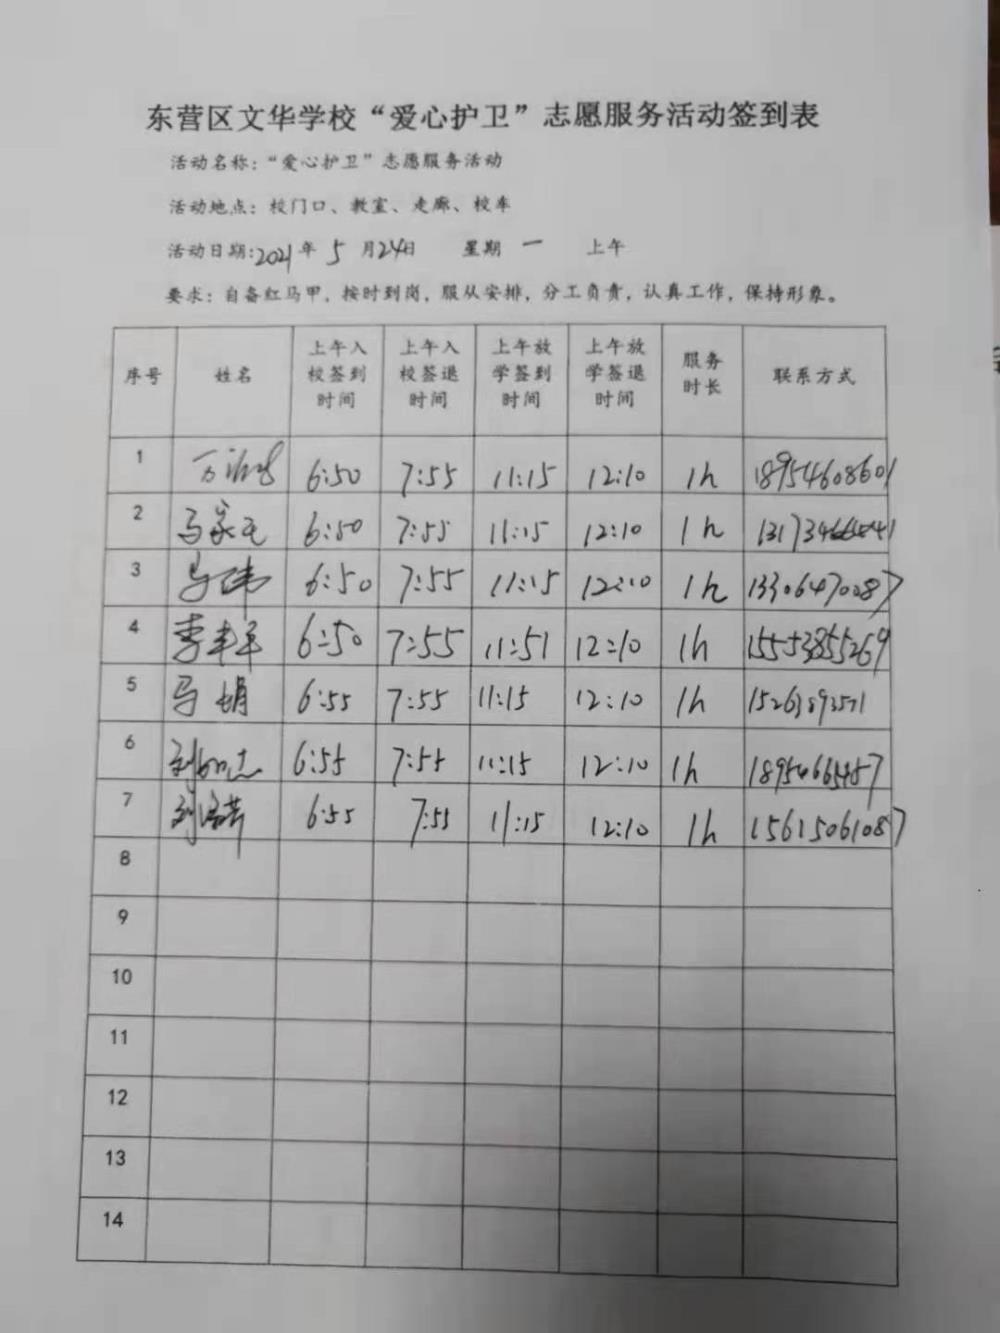 东营区文华学校“爱心护卫”志愿服务活动签到表
活动名称：“爱心护卫”志愿服务活动
活动地点：校门口、教室、走廊、校车
活动日期:2021年 5 月24日 星期 一 上午
要求：自备红马甲，按时到岗，服从安排，分工负责，认真工作，保持形象。
序号 姓名 上午入校签到时间 上午入校签退时间 上午放学签到时间 上午放学签退时间 服务时长 联系方式
1 6:50 7:55 11:15 12:10 1h 18954608601
2 6:50 7:55 11:15 12:10 1h
3 马伟 6:50 7:55 11:15 12:10 1h 13306470087
4 李丰军 6:50 7:55 11:51 12:10 1h 15553855269
5 马娟 6:55 7:55 11:15 12:10 1h 15263893571
6 刘如志 6:55 7:55 11:15 12:10 1h 18954665457
7 6:55 7:55 11:15 12:10 1h 15615061087
8
9
10
11
12
13
14